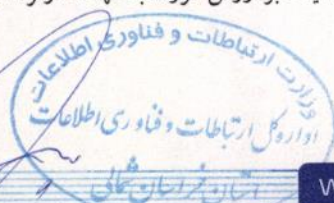 وزارت ارتباطات و فناوری اطلاعات
اداره کل ارتباطات و فناوری اطلاعات
استان خراسان شمالی
W